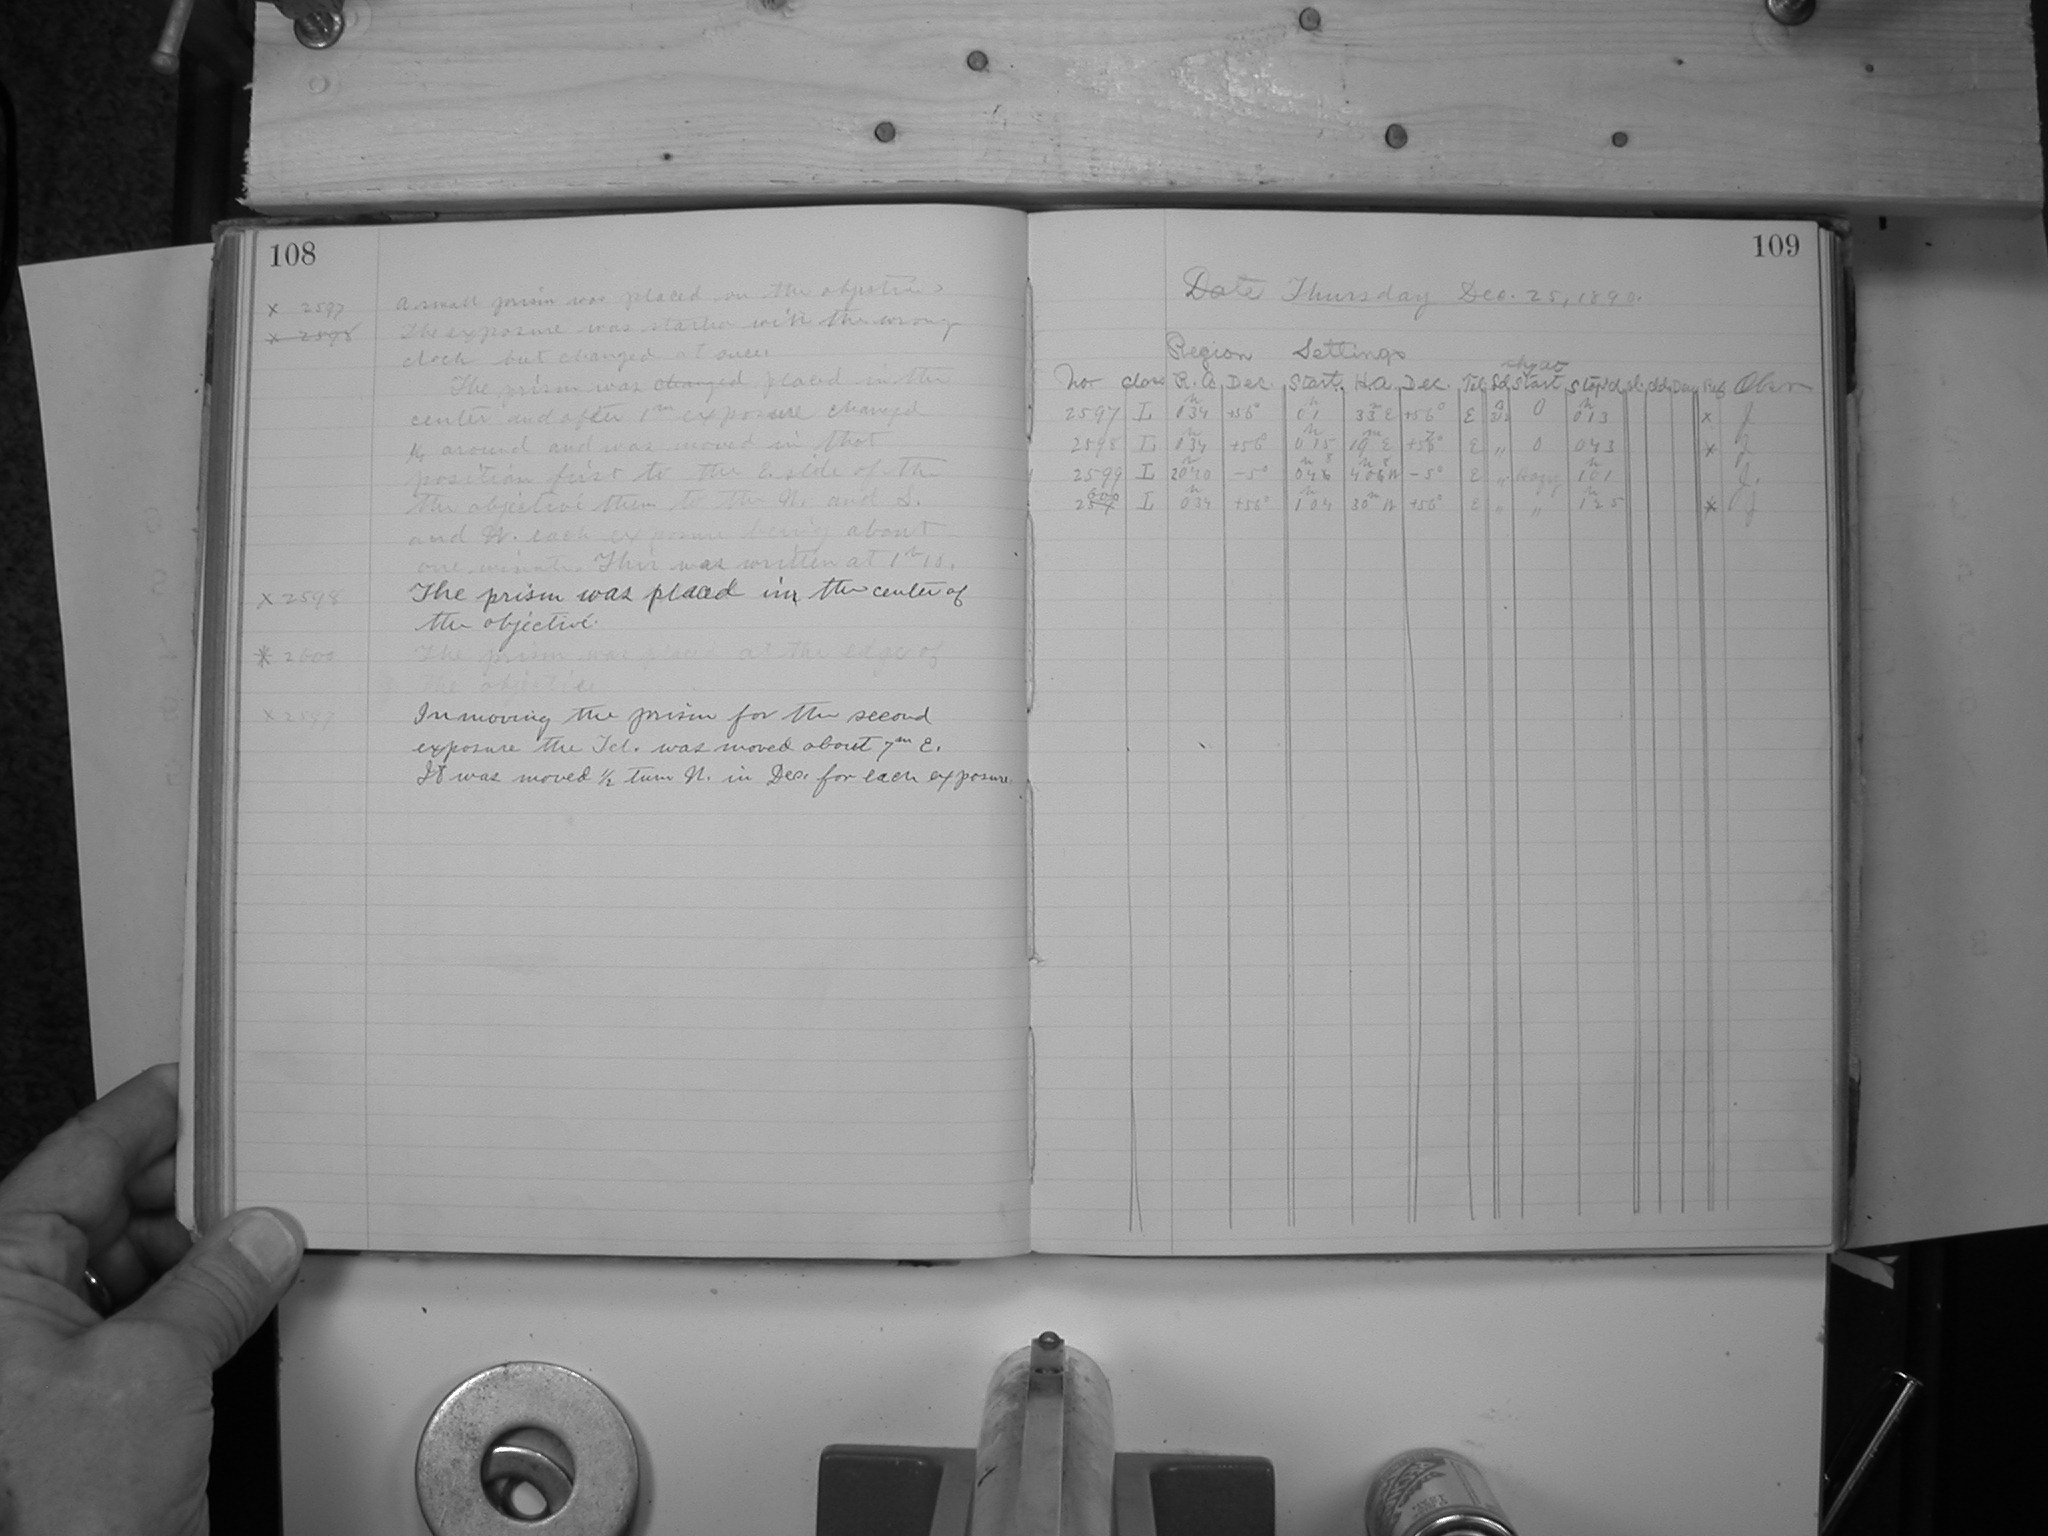 108
x 2597 A small prism was placed on the objective
x 2598 The exposure was started with the wrong
clock but changed at once.
The prism was changed placed in the
center and after 1m exposure changed
around and was moved in that
position first to the E. side of the
the objective then to the N. and S.
and W. each exposure being about
one minute. This was written at 1h 18.
x 2598 The prism was placed in the center of
the objective.
x 2600 The prism was placed at the edge of
the objective
x 2597 In moving the prism for the second
exposure the Tel. was moved about 7m E.
It was moved ½ turn N. in Dec. for each exposure
109
Date Thursday Dec. 25, 1890.
Region Settings
No Class R.A. Dec. Start H.A. Dec. Tel Sd Start Stop'd Obsr
2597 L 0h34 +56° 0h1 33m E +56° E 0 0h13 x J
2598 L 0h34 +56° 0h15 19m E +56° E " 0 043 x J
2599 L 20h40 -5° -5° E " Hazy 1h01 J.
2600 L 0h34 +56° 1h04 30m W +56° E " " 1h25 x J